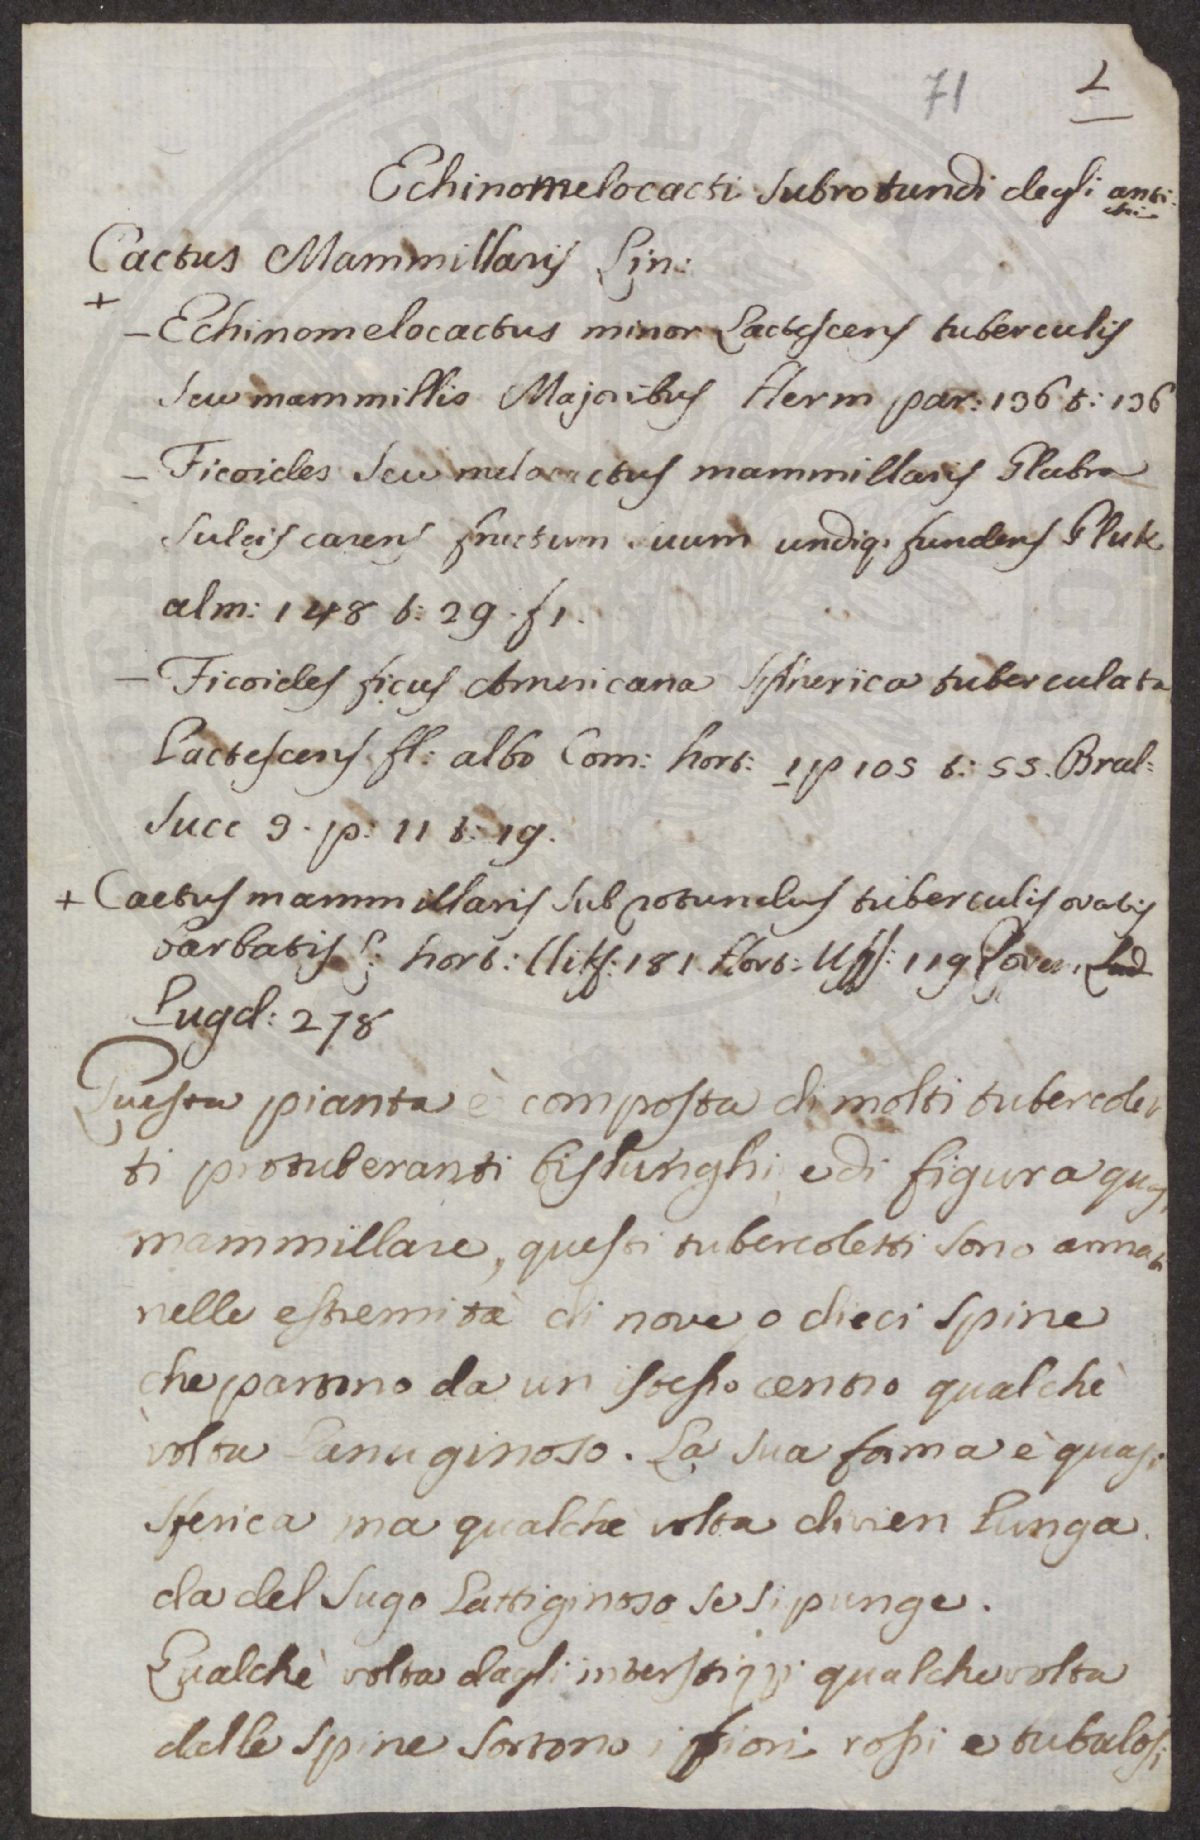 71 L
Echinomelocacti Subrotundi degli anti:
chi
Cactus Mammillaris Lin:
+
– Echinomelocactus minor Lactescens tuberculis
Seu mammillis Majoribus Herm par: 136 t: 136
– Ficoides Seu melocactus mammillaris Glabra
Sulcis carens fructum suum undiq. fundens Pluk
alm: 148 t: 29. f 1.
– Ficoides ficus Americana Spherica tuberculata
Lactescens fl: albo Com: hort: 1 p 105 t: 55. Brad:
Succ 3. p: 11 t: 19.
+ Cactus mammillaris Subrotundus tuberculis ovatis
barbatis L: hort: Clif: 181 Hort: Ups: 119 Roven.
Lugd: 278
Questa pianta è composta di molti tubercolet
ti protuberanti bislunghi, e di figura quasi
mammillare, questi tubercoletti sono armati
nelle estremità di nove o dieci spine
che partono da un istesso centro qualchè
volta Lanuginoso. La sua forma è quasi
sferica ma qualche volta divien Lunga.
da del Sugo Lattiginoso se si punge.
Qualchè volta dagli interstizji qualche volta
dalle spine sortono i fiori rossi e tubulosi